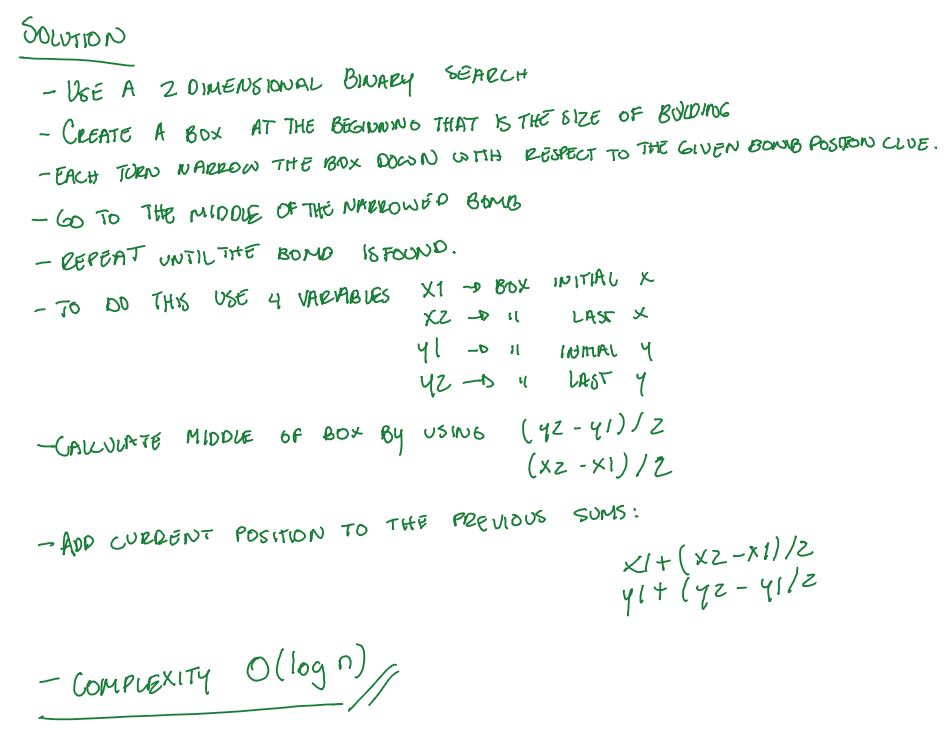 SOLUTION
- USE A 2 DIMENSIONAL BINARY SEARCH
- CREATE A BOX AT THE BEGINNING THAT IS THE SIZE OF BUILDING
- EACH TURN NARROW THE BOX DOWN WITH RESPECT TO THE GIVEN BOMB POSITION CLUE.
- GO TO THE MIDDLE OF THE NARROWED BOMB
- REPEAT UNTIL THE BOMB IS FOUND.
- TO DO THIS USE 4 VARIABLES X1 → BOX INITIAL X
X2 → " LAST X
Y1 → " INITIAL Y
Y2 → " LAST Y
- CALCULATE MIDDLE OF BOX BY USING (Y2 - Y1) / 2
(X2 - X1) / 2
- ADD CURRENT POSITION TO THE PREVIOUS SUMS:
X1 + (X2 - X1) / 2
Y1 + (Y2 - Y1 / 2
- COMPLEXITY O(log n)